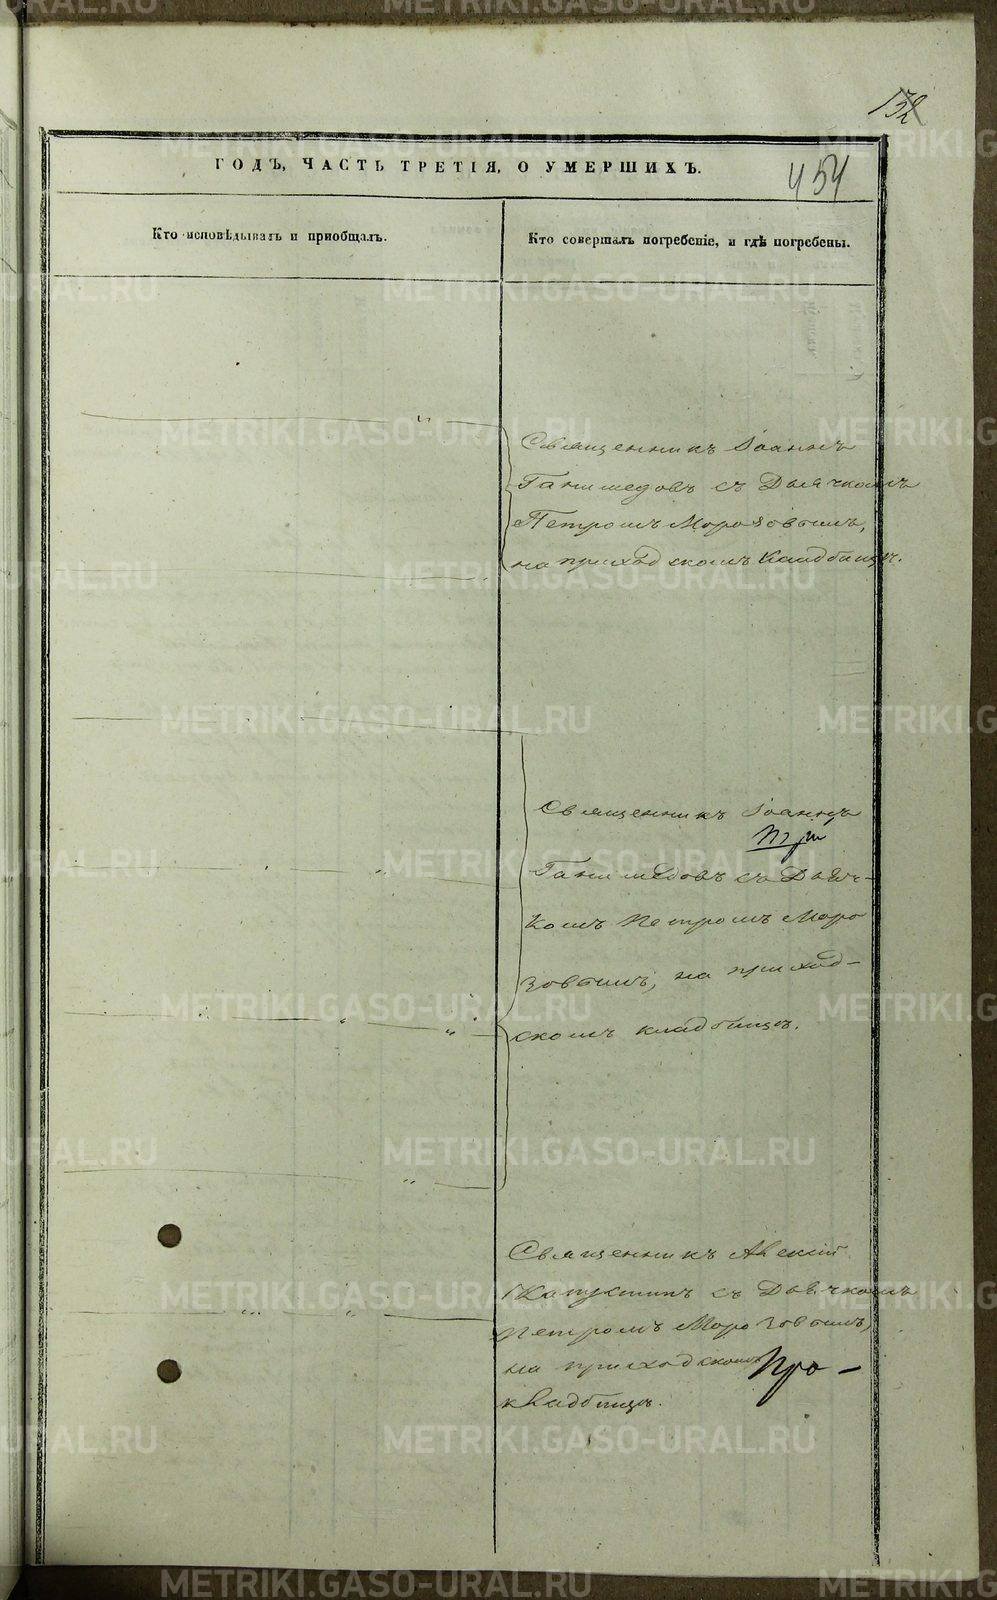 132
ГОДЪ, ЧАСТЬ ТРЕТІЯ, О УМЕРШИХЪ.
454
Кто исповѣдывалъ и пріобщалъ.
Кто совершалъ погребеніе, и гдѣ погребены.
Священникъ Іоаннъ
Ганимедовъ съ Дьячкомъ
Петромъ Морозовымъ,
на приходскомъ Кладбищѣ.
Священникъ Іоаннъ
Ганимедовъ съ Дьяч-
комъ Петромъ Моро
зовымъ, на приход-
скомъ кладбищѣ.
Священникъ Алексій
Капустинъ съ Дьячкомъ
Петромъ Морозовымъ,
на приходскомъ
Про-
кладбищѣ.
METRIKI.GASO-URAL.RU